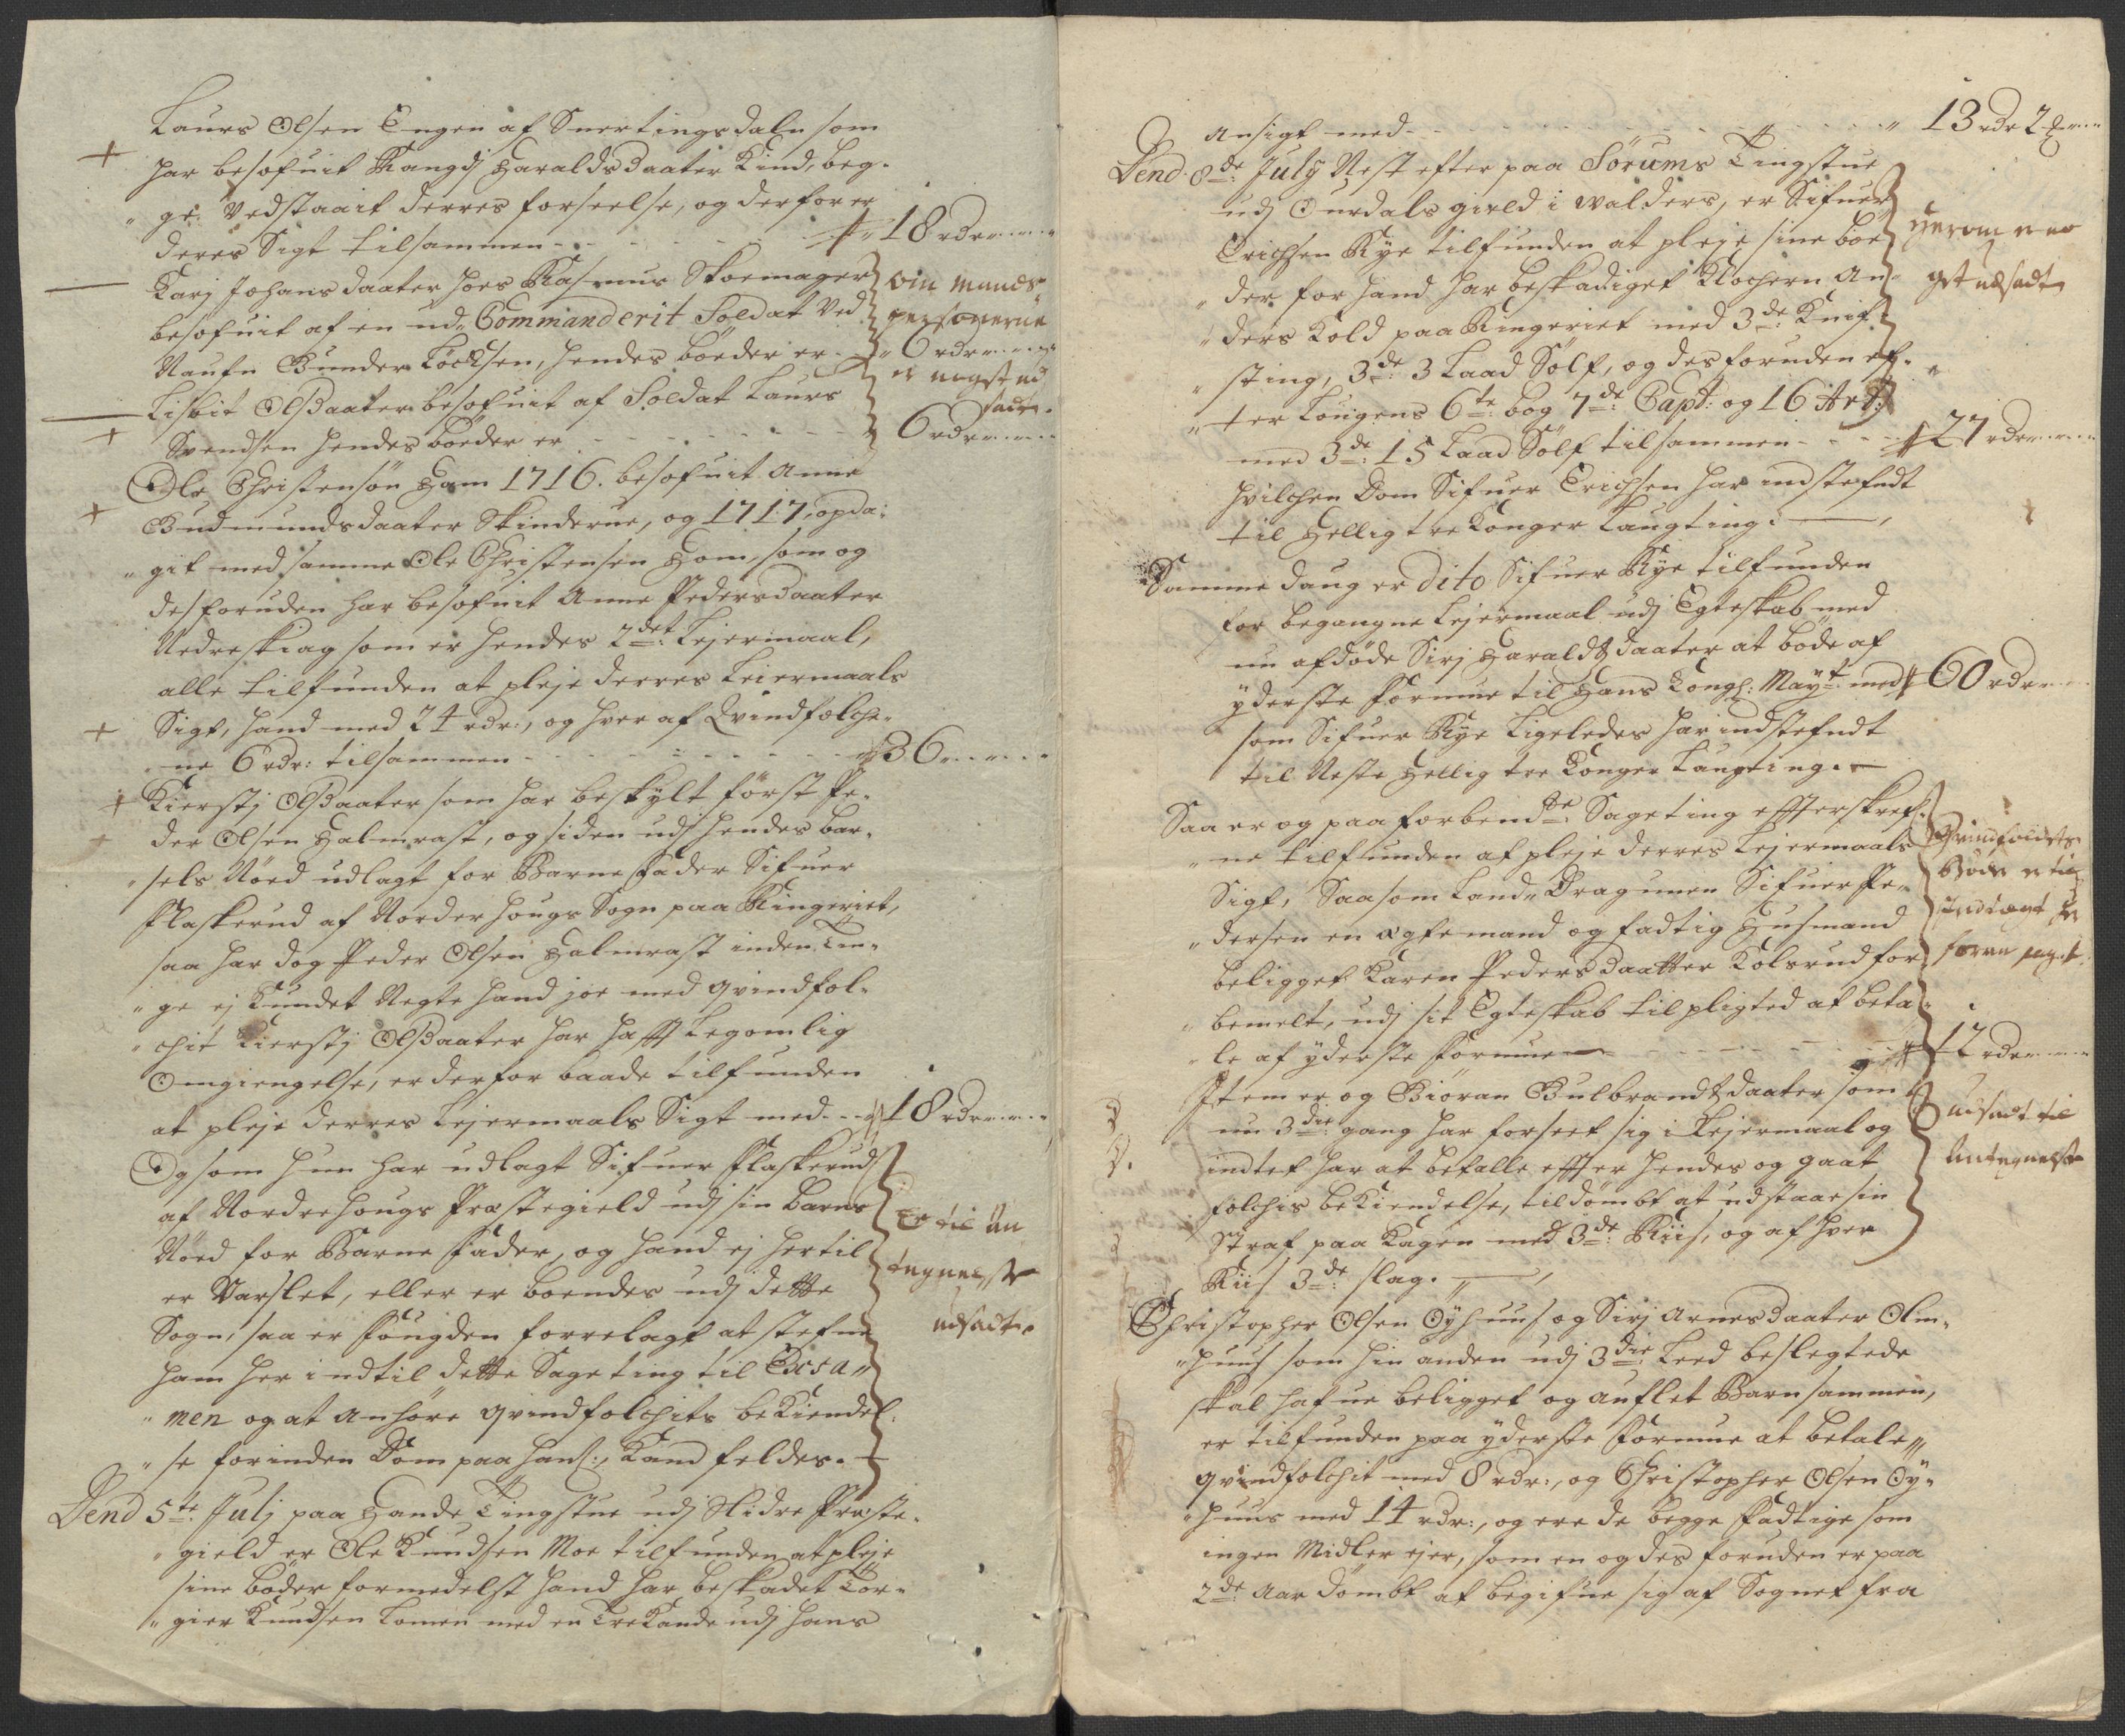 Laurs Olsen Engen af Snertingsdaln som
har besofuit Rangdj Haraldsdaater Kind, beg-
ge Vedstaait derres forseelse, og derfor er
deres Sigt tilsammen - - - 18 rdr
Karj Johansdaater hoes Rasmus Skoemager
besofuit af en ud Commanderit Soldat Ved
Naufn Gunder Löchsen, hendes böeder er - 6 rdr
om mands
personerne
er negst ud
sadt.
Lisbit Olsdaater besofuit af Soldat Laurs
Svendsen hendes böeder er - - - 6 rdr
Ole Christensön Ham 1716. besofuit Anne
Gudmundsdaater Skinderue, og 1717, opda:
git med samme Ole Christensen Ham, som og
desforuden har besofuit Anne Pedersdaater
Nedreskiag som er hendes 2det: Lejermaal,
alle tilfunden at pleje derres Leiermaals
Sigt, hand med 24 rdr:, og hver af Qvindfolche-
ne 6 rdr: tilsammen - - - 36
Kierstj Olsdaater som har beskylt först Pe-
der Olsen Halmrast, og siden udj hendes bar-
sels Nöed udlagt for Barne Fader Sifuer
Flaskerud af Norderhougs Sogn paa Ringeriet,
saa har dog Peder Olsen Halmrast inden Tin-
ge ej Kundet Negte hand joe med qvindfol-
chit Kierstj Olsdaater har hafft Legomlig
Omgiengelse, er derfor baade tilfunden
at pleje derres Lejermaals Sigt med - - - 18 rdr
Og som hun har udlagt Sifuer Flaskerud
af Norderhougs Præstegield udj sin Barns
Nöed for Barne Fader, og hand ej hertil
er Varslet, eller er boendes udj dette
Sogn, saa er Fougden forrelagt at stefne
ham her indtil dette Sageting til Exsa-
men og at anhöre qvindfolchits beKiendel-
se forinden Dom paa hans:, Kand feldes.
Er til An
tegnelse
udsadt.
Dend 5te: Julj paa Hande Tingstue udj Slidre Præste-
gield er Ole Knudsen Moe tilfunden at pleje
sine böder formedelst hand har beskadet Tor-
gier Knudsen Lomen med en TreKande udj hans
ansigt med - - - 13 rdr 2
Dend 8de: July Nest efter paa Sörums Tingstue
udj Ourdals gield i Walders, er Sifuer
Erichsen Rye tilfunden at pleje sine böe
der for hand har beskadiget Klochern An-
ders Kold paa Ringeriet med 3de: Knif-
sting, 3de: 3 Laad Sölf, og desforuden ef-
ter Lougens 6te: bog 7de: Capt: og 16 Art:
med 3de: 15 Laad Sölf tilsammen - - - 27 rdr
hvilchen Dom Sifuer Erichsen har indstefndt
til Helligtre Konger Laugting:
Samme daug er dito Sifuer Rye tilfunden
for begangne Lejermaal udj Egteskab med
nu afdöde Sirj Haraldsdaater at böde af
yderste formue til Hans Kongl: Mayt: med 60 rdr
som Sifuer Rye Ligeledes har indstefndt
til Neste Hellig tre Konger Laugting.
Saa er og paa forbendte: Sageting effterskref-
ne tilfunden at pleje derres Lejermaals
Sigt, Saasom Land Dragunen Sifuer Pe-
dersen en ægte mand og fadtig Husmand
beligget Karen Pedersdaatter Kolsrud for
bemelt, udj sit Egteskab tilpligted at beta-
le af yderste formue - - - 12 rdr
Qvindfolchets
Böder er til
indtægt her
foran
Item er og Giöran Gulbrandsdaater som
nu 3die: gang har forseet sig i Lejermaal og
indtet har at betalle effter hendes og gaat
folchis beKiendelse, tildömbt at udstaae sin
Straf paa Kagen med 3de: Riis, og af hver
Riis 3de: slag.
udsadt til
Antegnelse
Christopher Olsen Öyhuus og Sirj Arnesdaater Olm-
huus som hin anden udj 3die: Leed beslegtede
skal hafue beligget og auflet Barn sammen,
er tilfunden paa yderste formue at betale
qvindfolchit med 8 rdr:, og Christopher Olsen Öy-
huus med 14 rdr:, og ere de begge fadtige som
ingen Midler ejer, som en og des foruden er paa
2de: aar dömbt at begifue sig af Sognet fra